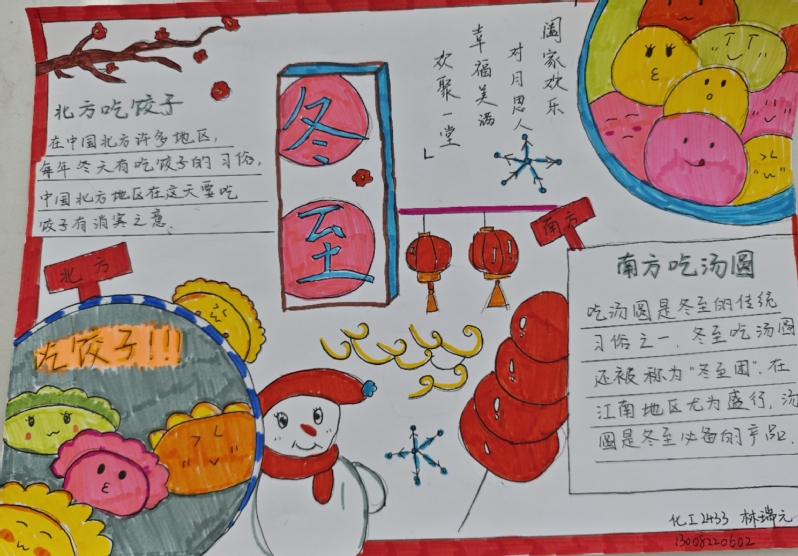 北方吃饺子
在中国北方许多地区,
每年冬天有吃饺子的习俗,
中国北方地区在这天要吃
饺子有消寒之意、
冬
至
阖家欢乐
对月思人
幸福美满
欢聚一堂
北方
吃饺子!!!
南方
南方吃汤圆
吃汤圆是冬至的传统
习俗之一、冬至吃汤圆
还被称为“冬至团”.在
江南地区尤为盛行.汤
圆是冬至必备的产品.
化工2433 林瑞元
13008220502